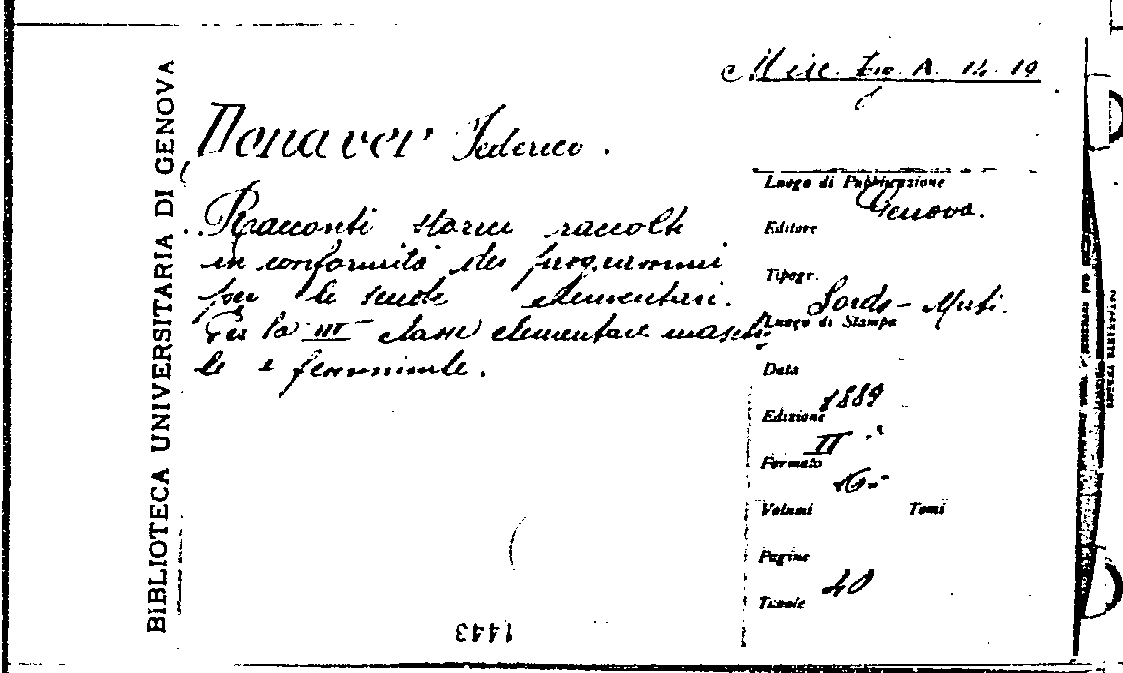 BIBLIOTECA UNIVERSITARIA DI GENOVA
Misc. Lig. A. 14. 19
Donaver Federico.
Racconti storici raccolti
in conformità dei programmi
per le scuole elementari.
Per la III classe elementare maschi-
le e femminile.
Luogo di Pubblicazione
Genova.
Editore
Tipogr.
Sordo-Muti.
Luogo di Stampa
Data
1889
Edizione
IIª
Formato
16°
Volumi Tomi
Pagine
40
Tavole
1443